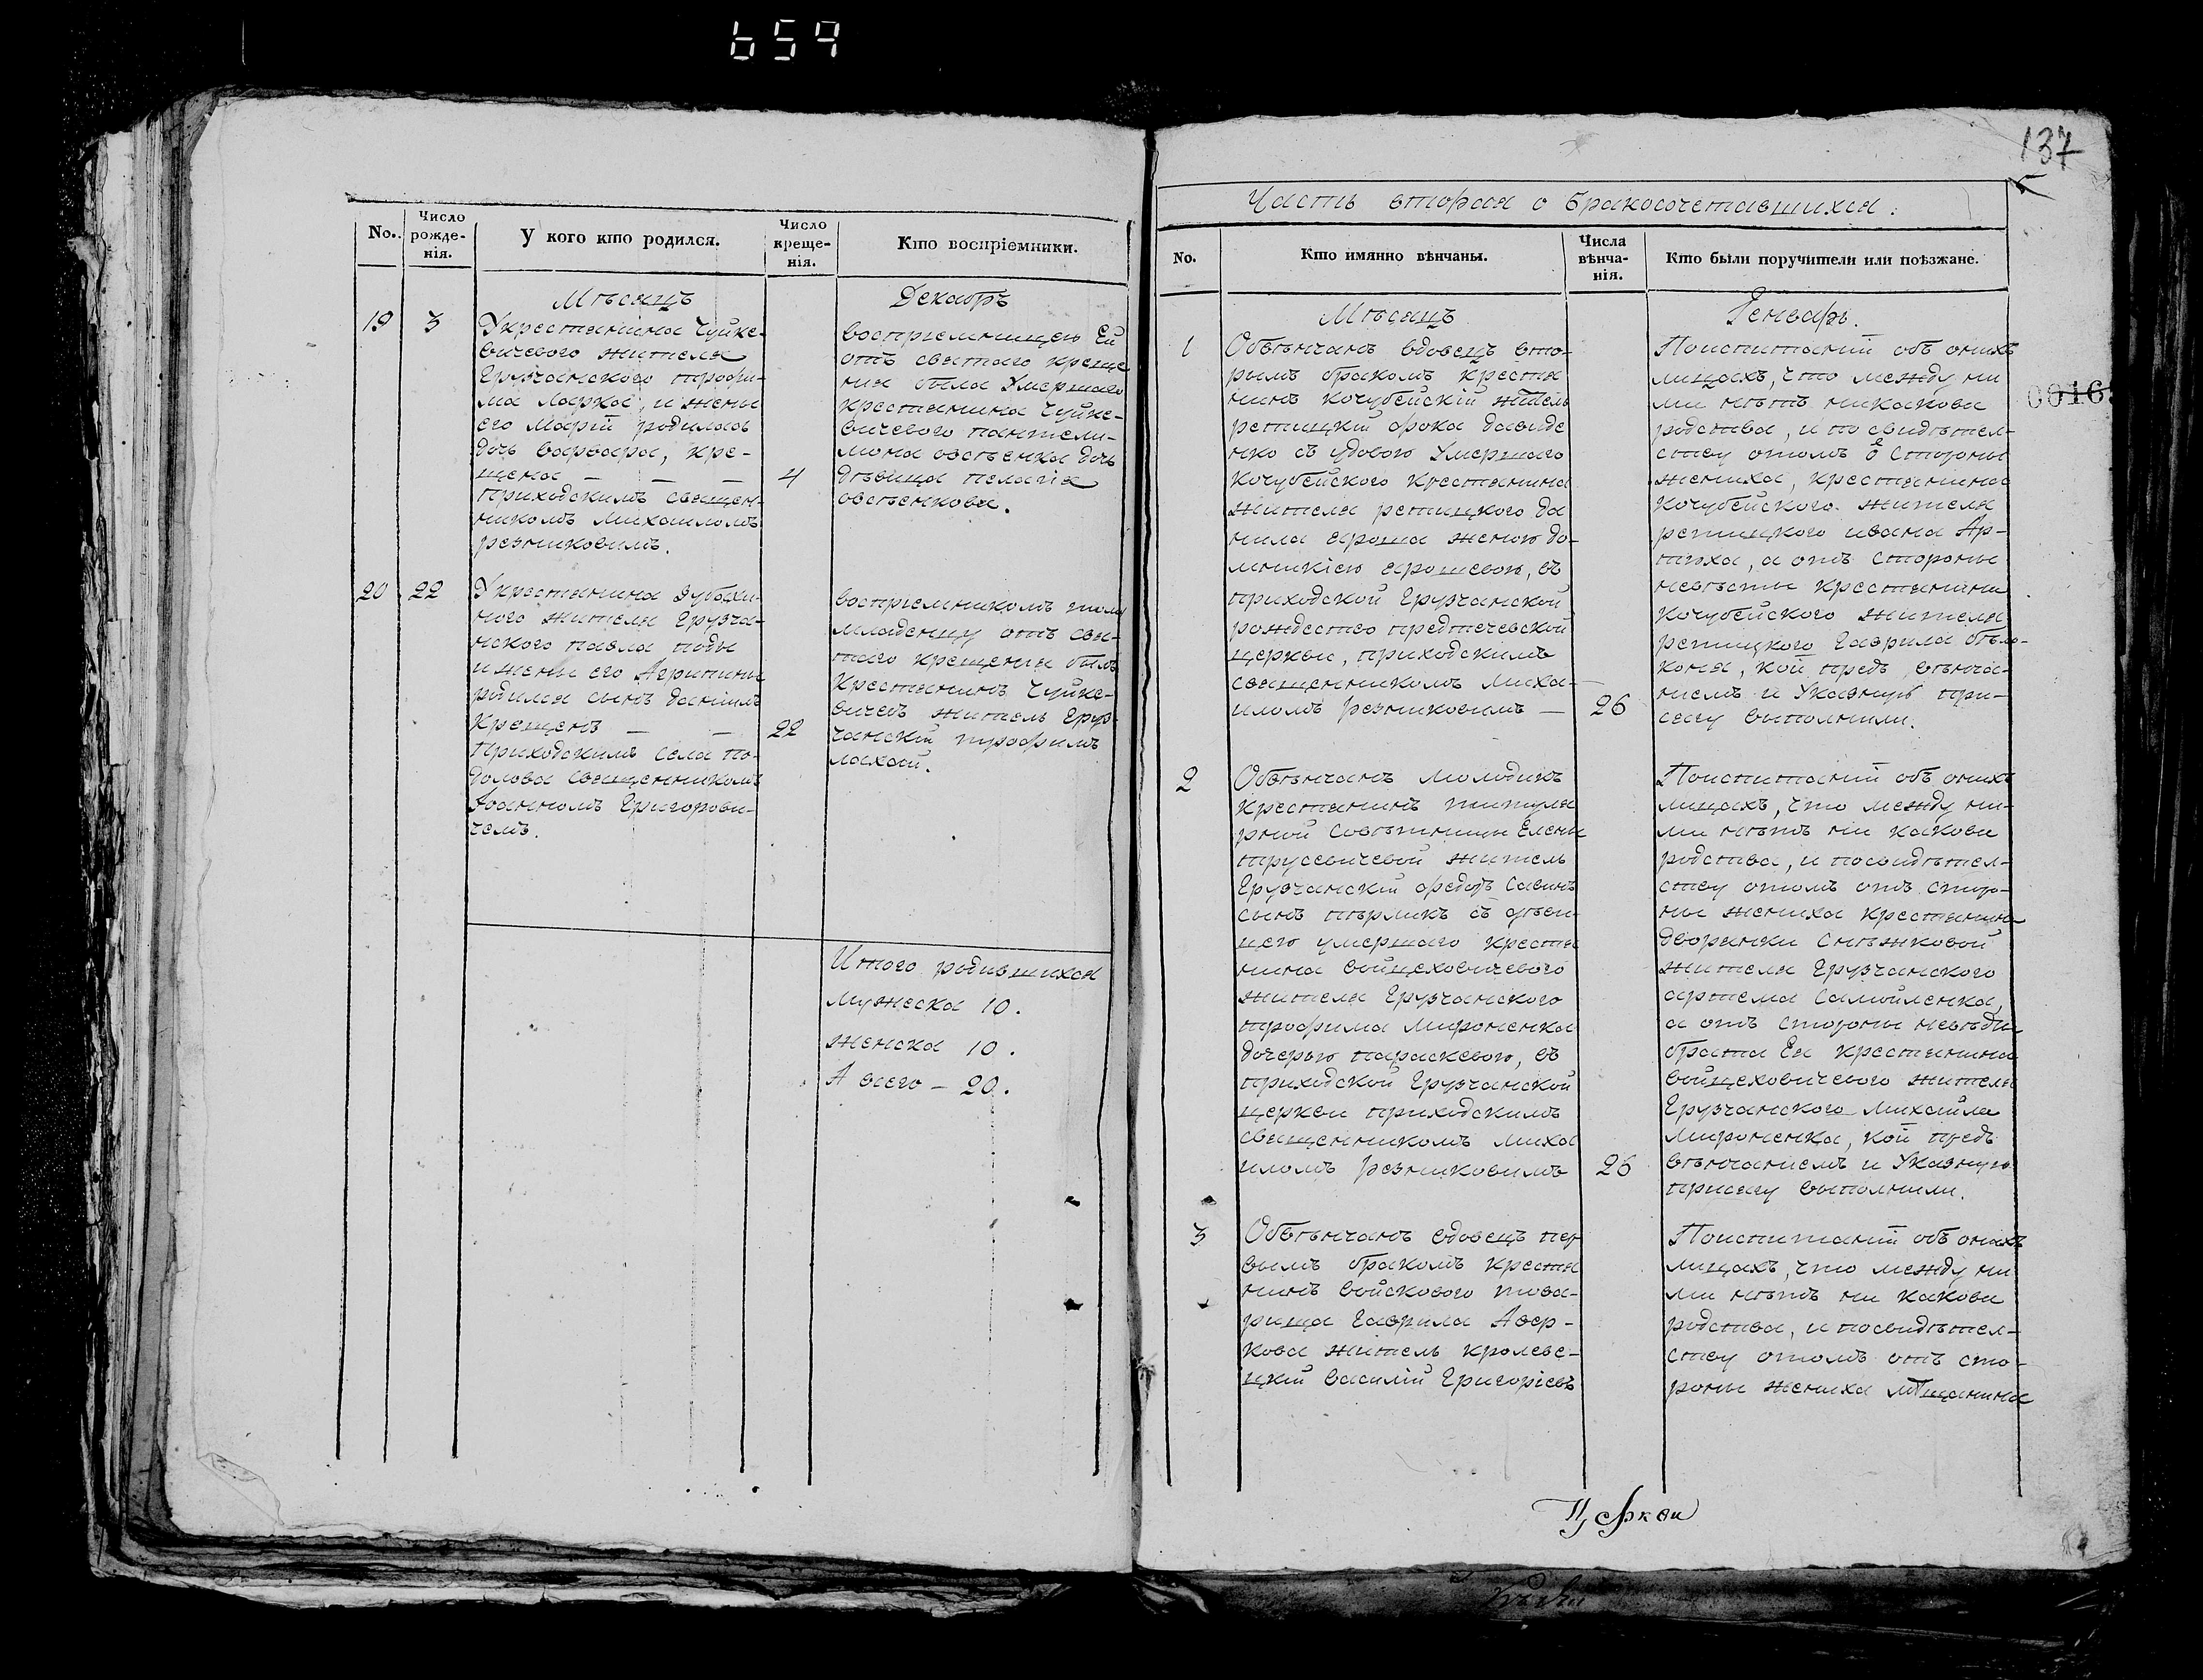 659
No.
Число рожде-
нія.
У кого кто родился.
Число
креще-
нія.
Кто воспріемники.
Мѣсяцъ
Декабрь
19
3
Укрестянина Чуйке-
вичевого жителя
Грузчанского трофи-
ма Ларка, и жены
его Маріи родилась
дочь варвара, кре-
щена — — —
приходскимъ священ-
никомъ Михаиломъ
резниковимъ.
4
воспріемницею Ей
отъ святаго креще
нія была Умершаго
крестянина Чуйке-
вичевого пантели-
мона овсѣенка дочь
дѣвица пелагія
овсѣенкова.
20
22
Укрестянина Дубяхи-
ного жителя Грузча-
нского павла
и жены его Агрипины
родился сынъ даніилъ
Крещенъ — —
Приходскимъ села по-
долова священникомъ
Іоанномъ Григорови-
чемъ.
22
воспріемникомъ тому
младенцу отъ свя-
таго крещенія былъ
Крестянинъ Чуйке-
вичевъ житель Груз-
чанскій трофимъ
Итого родившихся
мужеска 10.
женска 10.
А всего — 20.
137
Часть вторая о бракосочетавшихся:
No.
Кто имянно вѣнчаны.
Числа
вѣнча-
нія.
Кто были поручители или поѣзжане.
Мѣсяцъ
Генварь.
1
Обвѣнчанъ вдовецъ вто-
рымъ бракомъ крестя
нинъ кочубейскій житель
репицкій фока давиде
нко съ удовою Умершаго
Кочубейского крестянина
жителя репицкого да
нила ероша женою до-
мникіею ерошевою, въ
приходской Грузчанской
рождество предтечевской
церкви, приходскимъ
священникомъ миха-
иломъ резниковимъ —
26
Поиспитаніи объ онихъ
лицахъ, что между ни
ми нѣтъ никакова
родства, и по свидѣтел-
ству отомъ Стороны
жениха, крестянина
Кочубейского жителя
репицкого ивана Ар-
а отъ стороны
невѣсты крестянини
кочубейского жителя
репицкого Гаврила бѣло-
коня, кой предъ вѣнча-
ніемъ и Указную при-
сягу выполнили.
2
Обвѣнчанъ молодикъ
крестянинъ титуля
рной Совѣтницы Елены
трусевичевой житель
Грузчанскій федоръ савинъ
сынъ пѣрликъ съ дѣви-
цею умершаго крестя
нина войцеховичевого
жителя Грузчанского
трофима мироненка
дочерью параскевою, въ
приходской Грузчанской
церкви приходскимъ
священникомъ миха
иломъ резниковимъ
26
Поиспитаніи объ онихъ
лицахъ, что между ни-
ми нѣтъ ни какова
родства, и посвидѣтел-
ству отомъ отъ сторо-
ны жениха крестянина
дворянки Снѣжковой
жителя Грузчанского
артема самойленка,
а отъ стороны невѣсти
брата Ея крестянина
войцеховичевого жителя
Грузчанского михаила
мироненка, кой предъ
вѣнчаніемъ и Указную
присягу выполнили.
3
Обвѣнчанъ вдовецъ пер
вымъ бракомъ крестя
нинъ войскового това-
рища Гаврила Авер-
кова житель кролеве-
цкій василій Григоріевъ
Поиспитаніи объ онихъ
лицахъ, что между ни
ми нѣтъ ни какова
родства, и посвидѣтел-
ству отомъ отъ сто-
роны жениха мѣщанина
Церкви